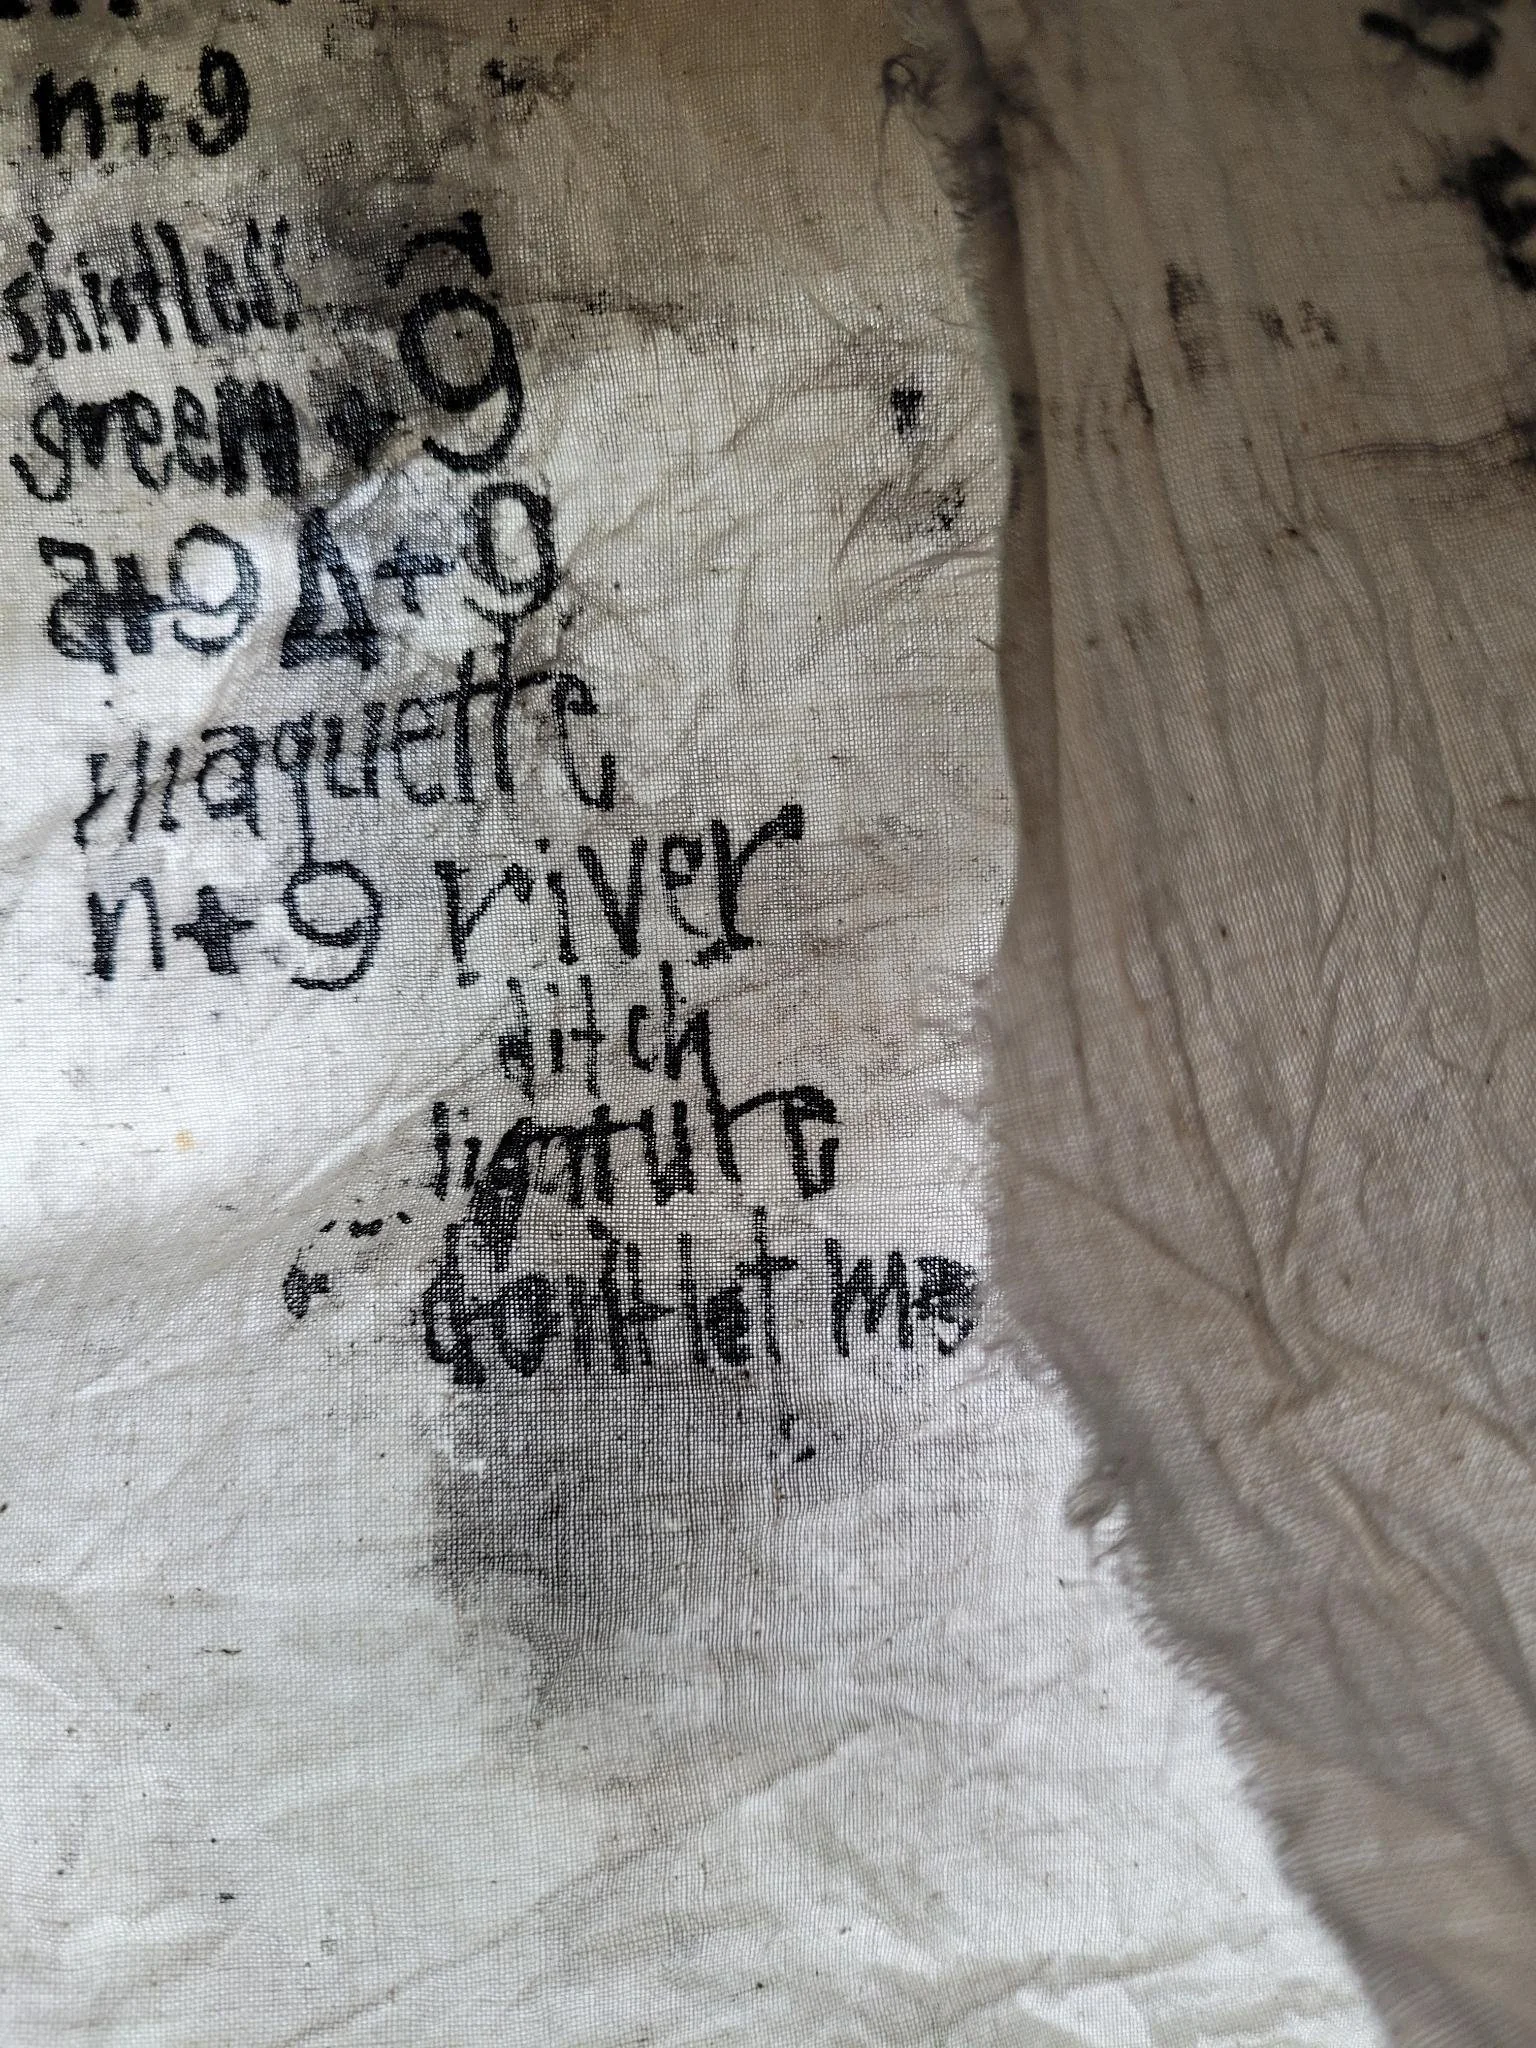 n+9
shirtless
green + 9
a+9 Δ+9
maquette
n+9 river
ditch
ligature